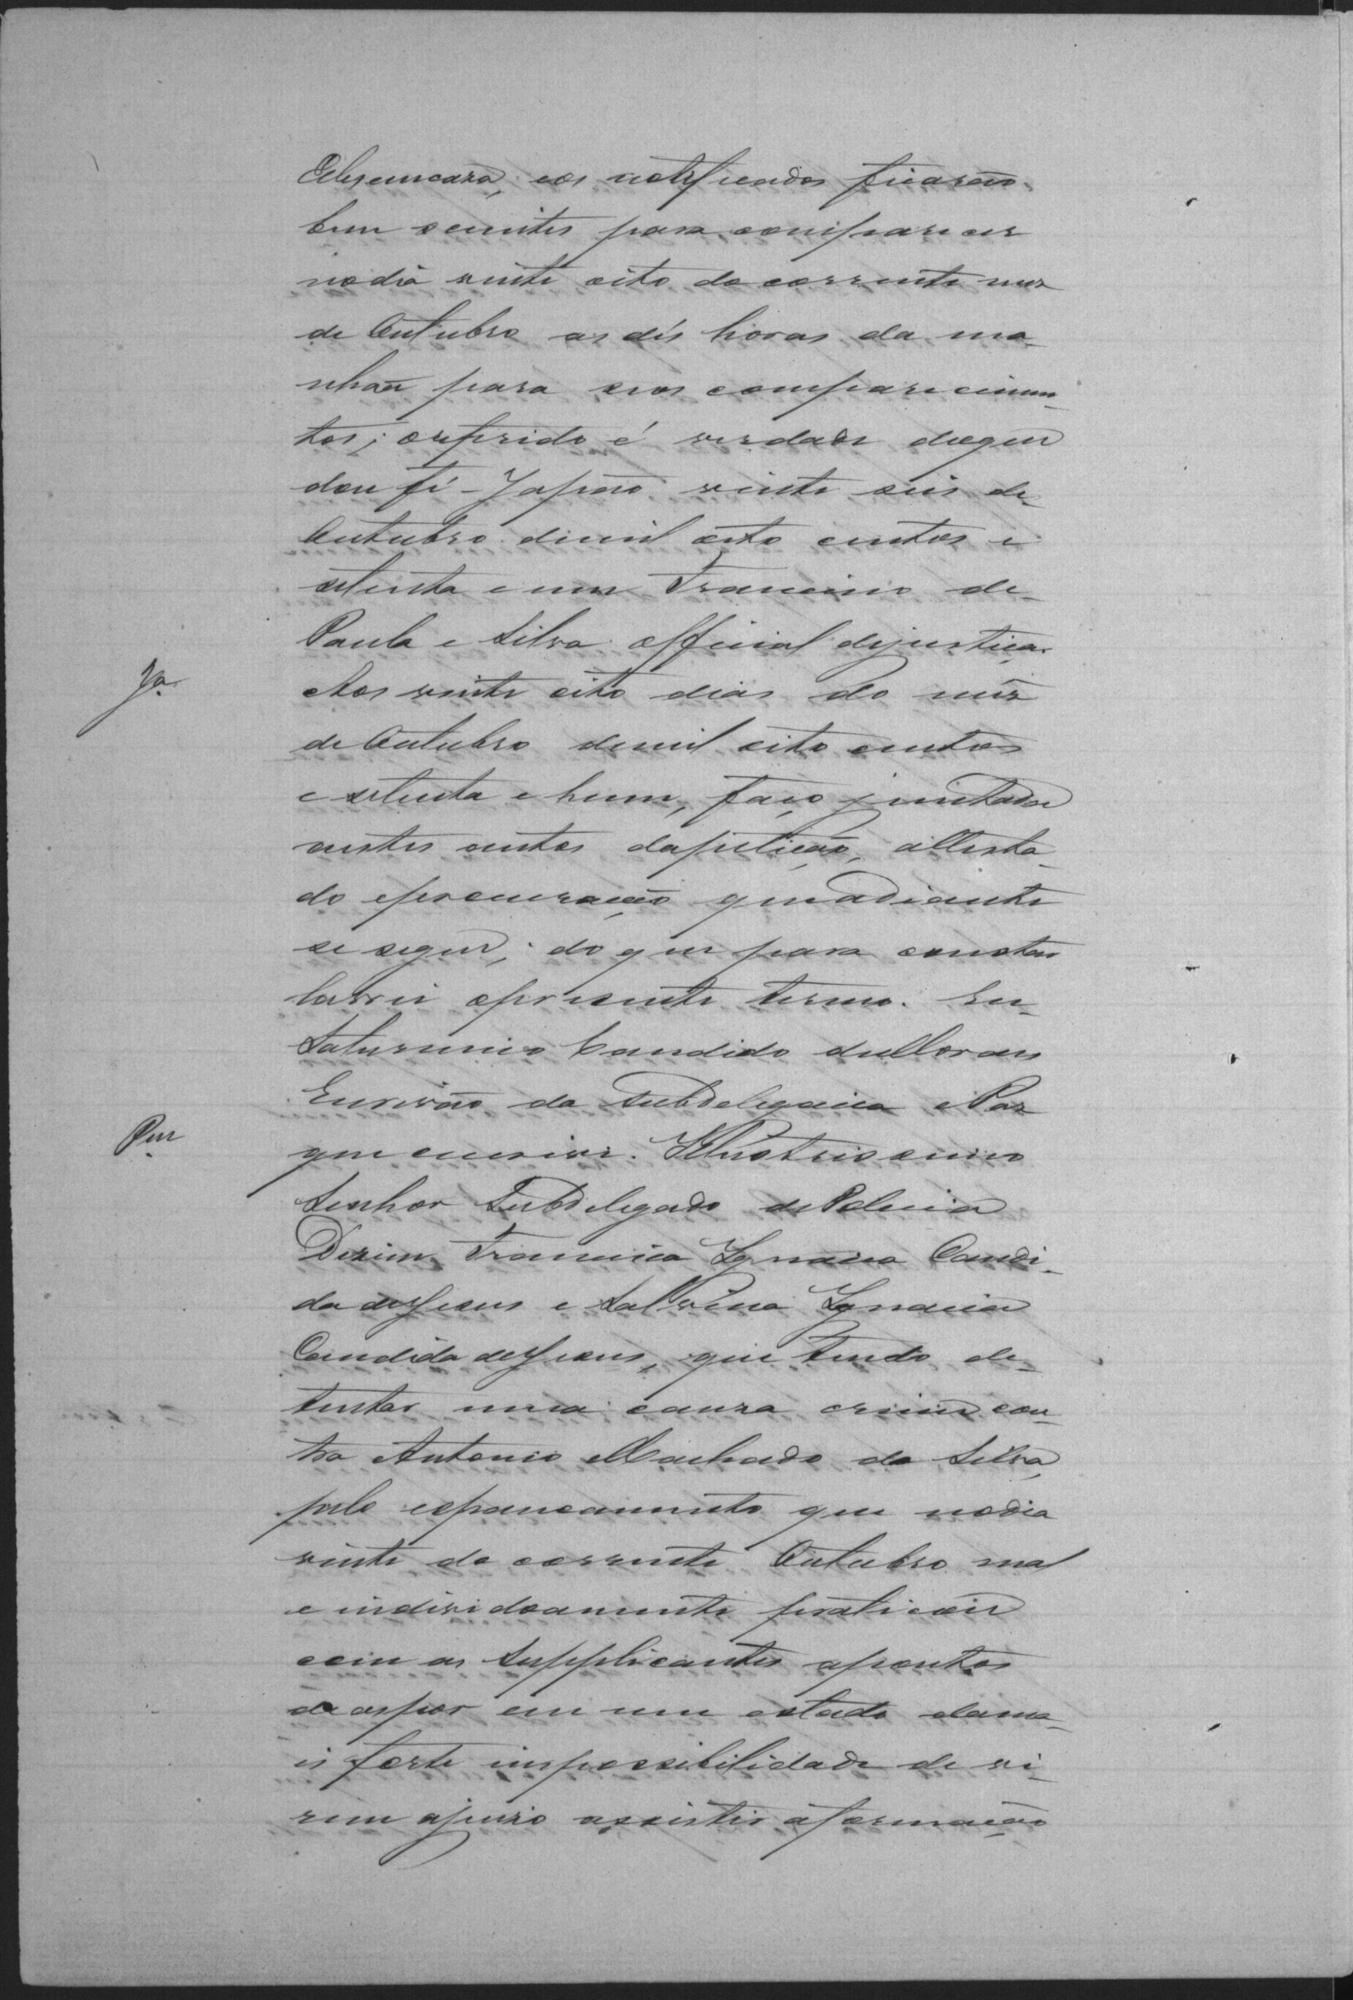 eos notificados ficarão
bem scientes para comparecer
no dia vinte oito do corrente mez
de Outubro as dés horas da ma-
nhaã para seos comparecimen-
tos; oreferido é verdade doque
dou fé - Japão vinte seis de
Outubro demil oito centos e
setenta e um Francisco de
Paula e Silva official dejustiça.
Ja.
Aos vinte oito dias do mez
de Outubro demil oito centos
e setenta e hum, faço juntada
nestes autos dapetição, attesta-
do eprocuração queadiante
se segue; do que para constar
lavrei opresente termo. Eu
Saturnino Candido deMoraes
Escrivão da Subdelegacia ePaz
Pm
que escrevi. Illustrissimo
Senhor Subdelegado dePolicia
Dizem Francisca Ignacia Candi-
da deJesus e Salvina Ignacia
Candida deJesus, que tendo de
tentar uma causa crime con-
tra Antonio Machado da Silva,
pelo espancamento que nodia
vinte do corrente Outubro mal
e indevidoamente praticou
com as Supplicantes apontos
de aspor em um estado dama-
is forte impossibilidade de vi-
rem ajuizo assistir aformação